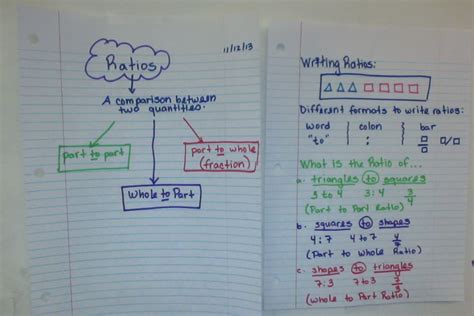 11/12/13
Ratios
A comparison between
two quantities.
part to part
part to whole
(fraction)
Whole to Part
Writing Ratios:
Different formats to write ratios:
word colon bar
"to" :
What is the Ratio of...
a. triangles to squares
3 to 4 3:4 3/4
(Part to Part Ratio)
b. squares to shapes
4:7 4 to 7 4/7
(Part to Whole Ratio)
c. shapes to triangles
7:3 7 to 3 7/3
(Whole to Part Ratio)